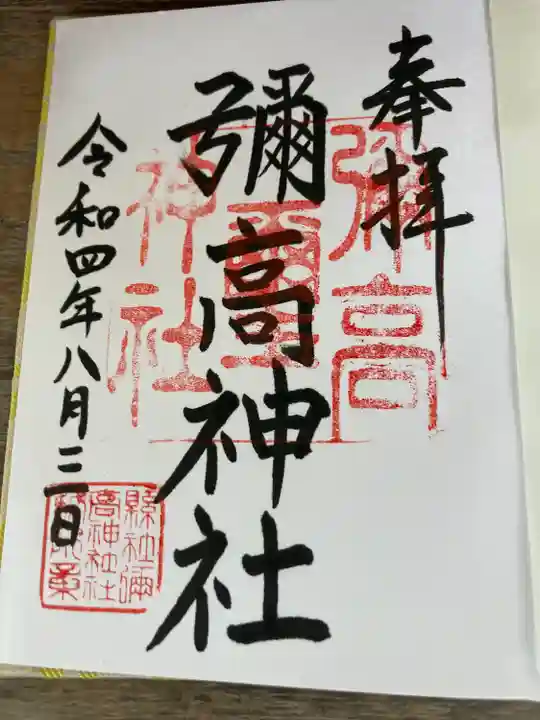 奉拝
彌高神社
令和四年八月二日
彌高
神社
縣社彌
高神社社